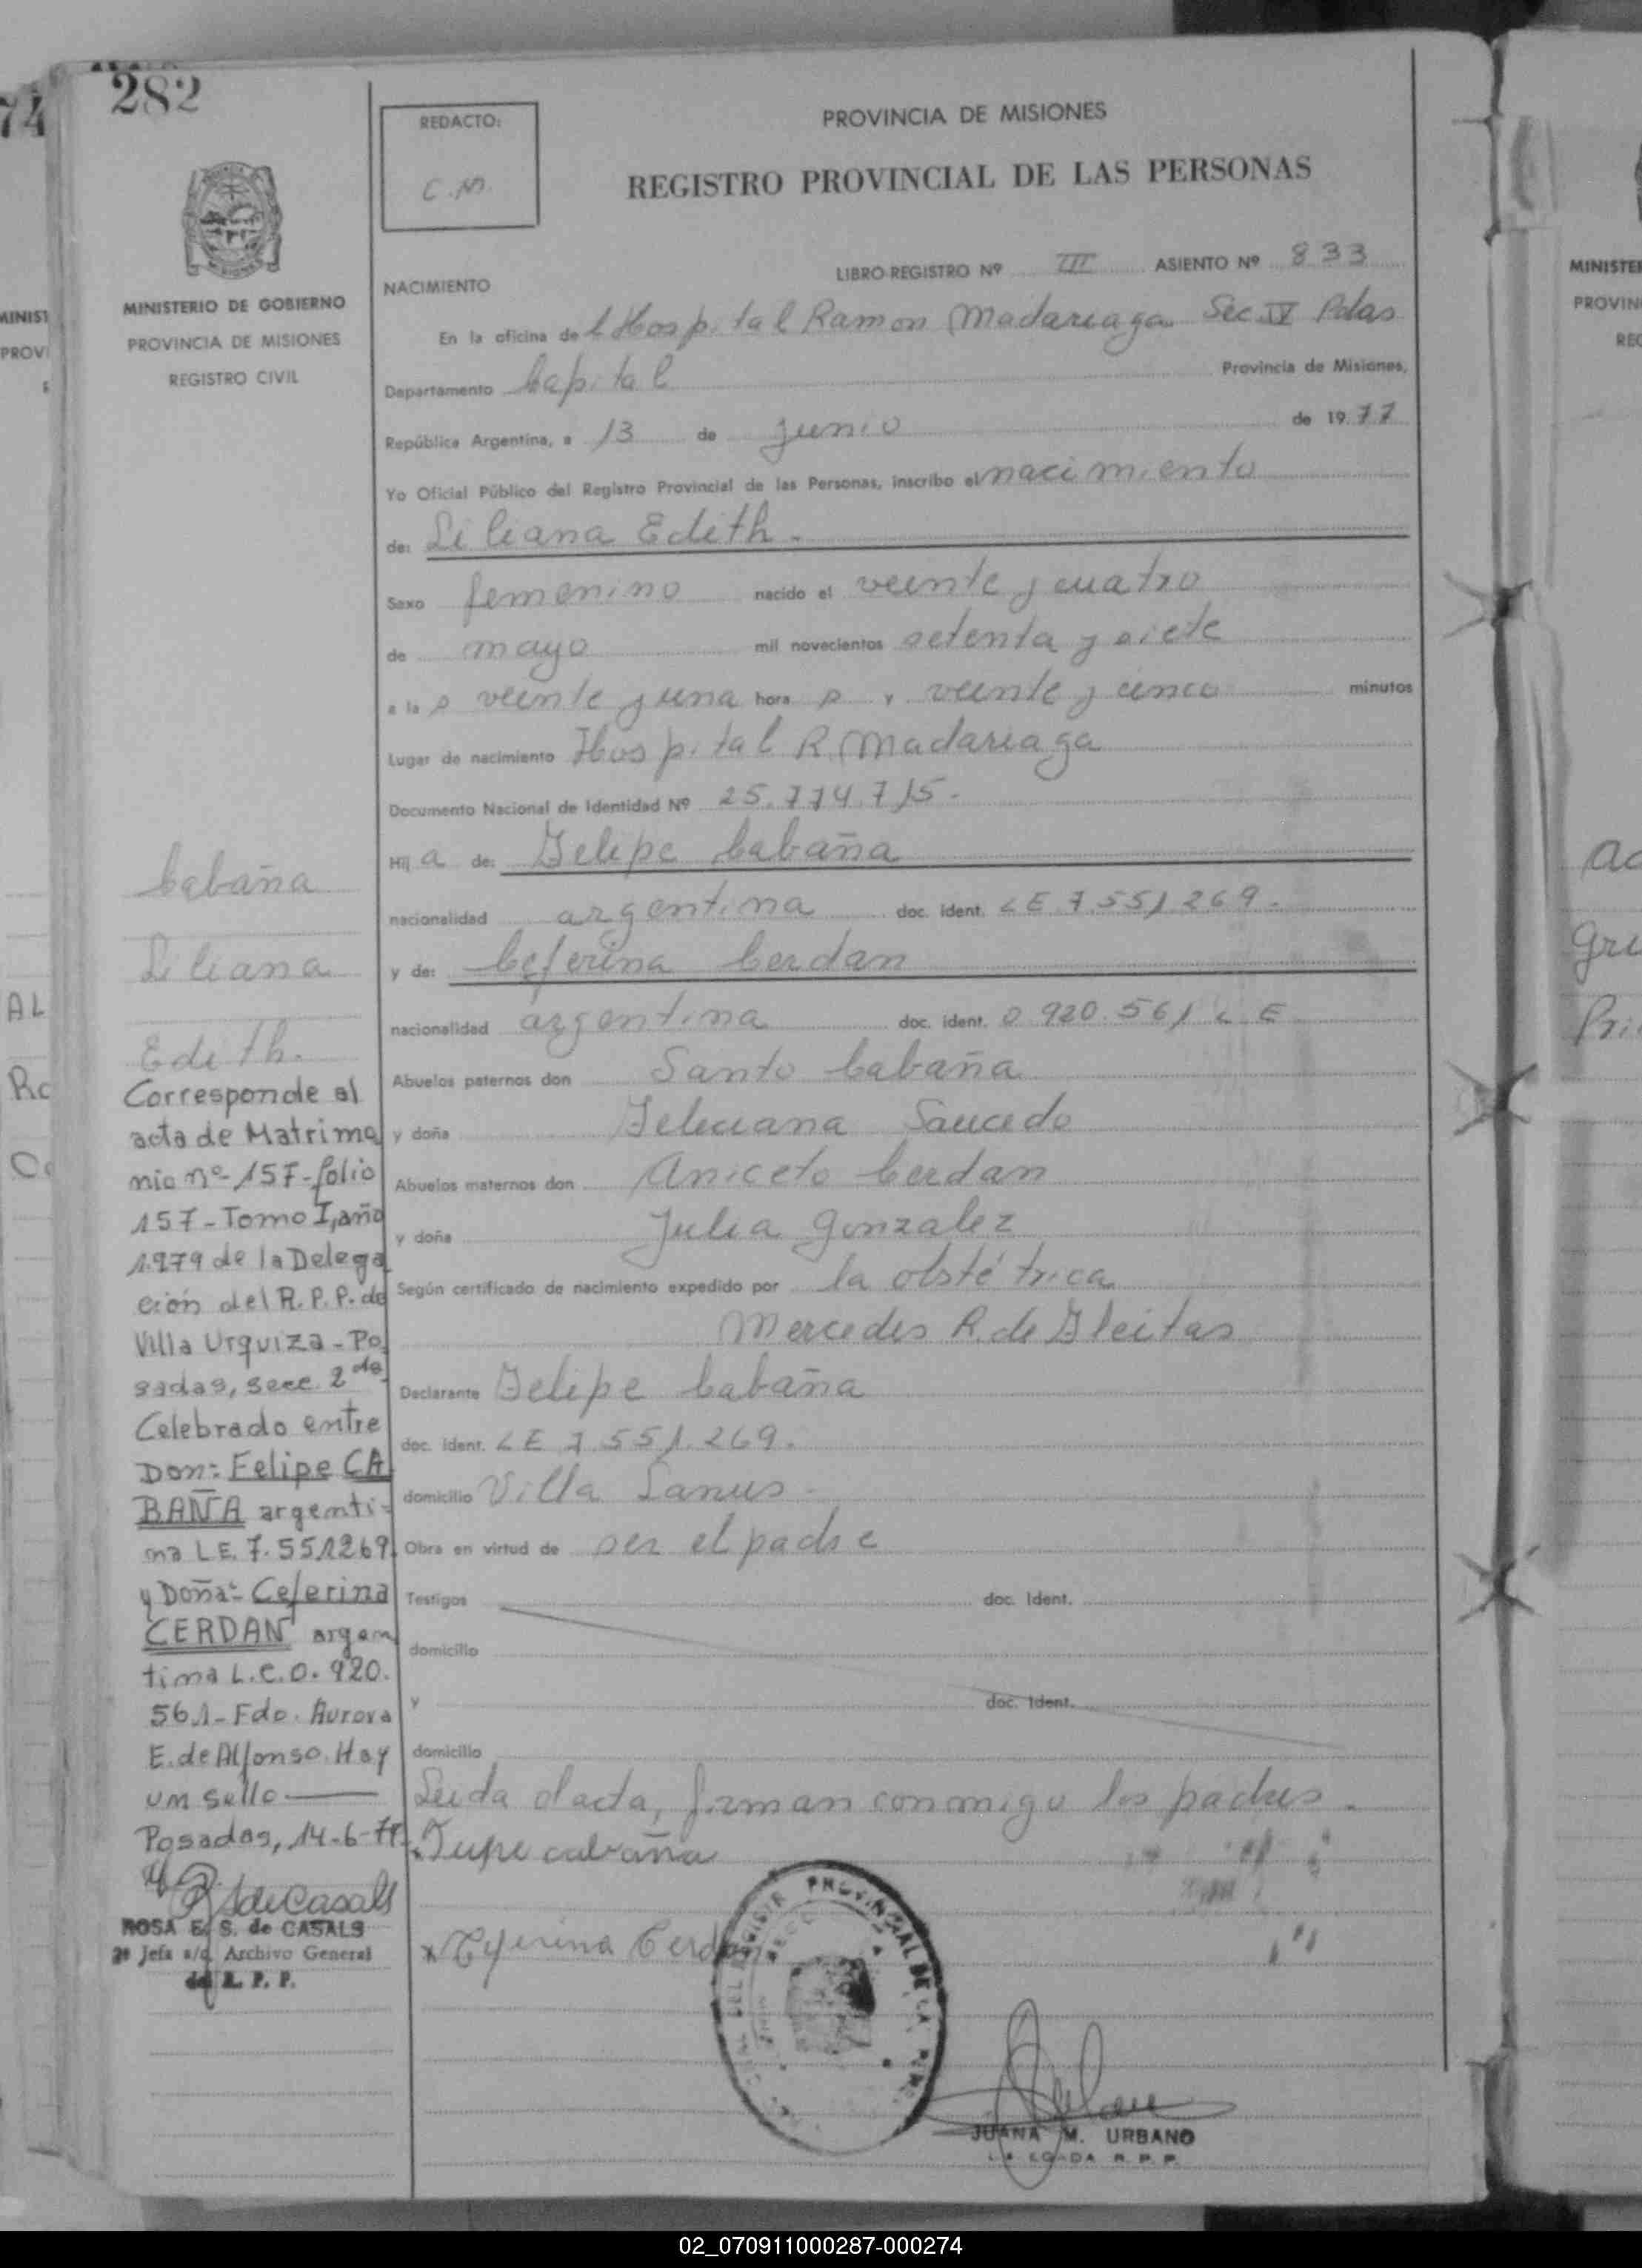 282
MINISTERIO DE GOBIERNO
PROVINCIA DE MISIONES
REGISTRO CIVIL
REDACTO:
C.M.
PROVINCIA DE MISIONES
REGISTRO PROVINCIAL DE LAS PERSONAS
NACIMIENTO
LIBRO-REGISTRO Nº III ASIENTO Nº 833
En la oficina de l Hospital Ramon Madariaga Sec. IV Pdas
Departamento Capital Provincia de Misiones,
República Argentina, a 13 de junio de 1977
Yo Oficial Público del Registro Provincial de las Personas, inscribo el nacimiento
de: Liliana Edith.
Sexo femenino nacido el veinte y cuatro
de mayo mil novecientos setenta y siete
a la s veinte y una hora s y veinte y cinco minutos
Lugar de nacimiento Hospital R. Madariaga
Documento Nacional de Identidad Nº 25.774.715.
Hij a de: Felipe Cabaña
nacionalidad argentina doc. ident. LE 7.551.269.
y de: Ceferina Cerdan
nacionalidad argentina doc. ident. 0.920.561 L E
Abuelos paternos don Santo Cabaña
y doña Feliciana Saucedo
Abuelos maternos don Aniceto Cerdan
y doña Julia Gonzalez
Según certificado de nacimiento expedido por la obstétrica
Mercedes R. de Gleitas
Declarante Felipe Cabaña
doc. ident. LE 7.551.269.
domicilio Villa Lanus.
Obra en virtud de ser el padre
Testigos doc. ident.
domicilio
y doc. ident.
domicilio
Leida el acta, firman conmigo los padres.
Cabaña
x Ceferina Cerdan
JUANA M. URBANO
R. P. P.
Cabaña
Liliana
Edith.
Corresponde al
acta de Matrimo
nio nº 157-folio
157-Tomo I, año
1.979 de la Delega
ción del R.P.P. de
Villa Urquiza - Po
sadas, secc. 2da
Celebrado entre
Don: Felipe CA
BAÑA argenti-
na LE. 7.551269.
y Doña: Ceferina
CERDAN argen
tina L.C.0.920.
561-Fdo. Aurora
E. de Alfonso. Hay
un sello
Posadas, 14-6-79.
ROSA E. S. de CASALS
2ª Jefa a/c Archivo General
del R. P. P.
74
MINIST
PROVI
AL
Ro
MINISTE
PROVIN
REG
Ac
Gru
Pri
02_070911000287-000274